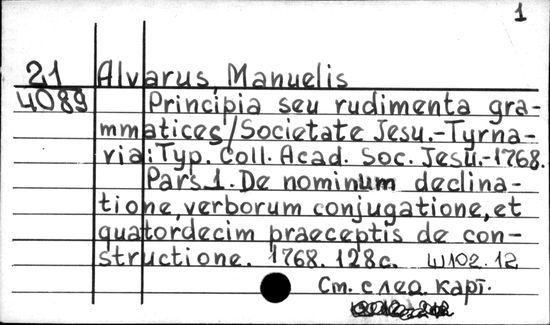 1
21 Alvarus, Manuelis
4089 Principia seu rudimenta gra-
mmatices/Societate Jesu.-Tyrna-
via: Typ. Coll. Acad. Soc. Jesu.-1768.
Pars 1. De nominum declina-
tione, verborum conjugatione, et
quatordecim praeceptis de con-
structione. 1768. 128с. Ш102.12
См. след. карт.